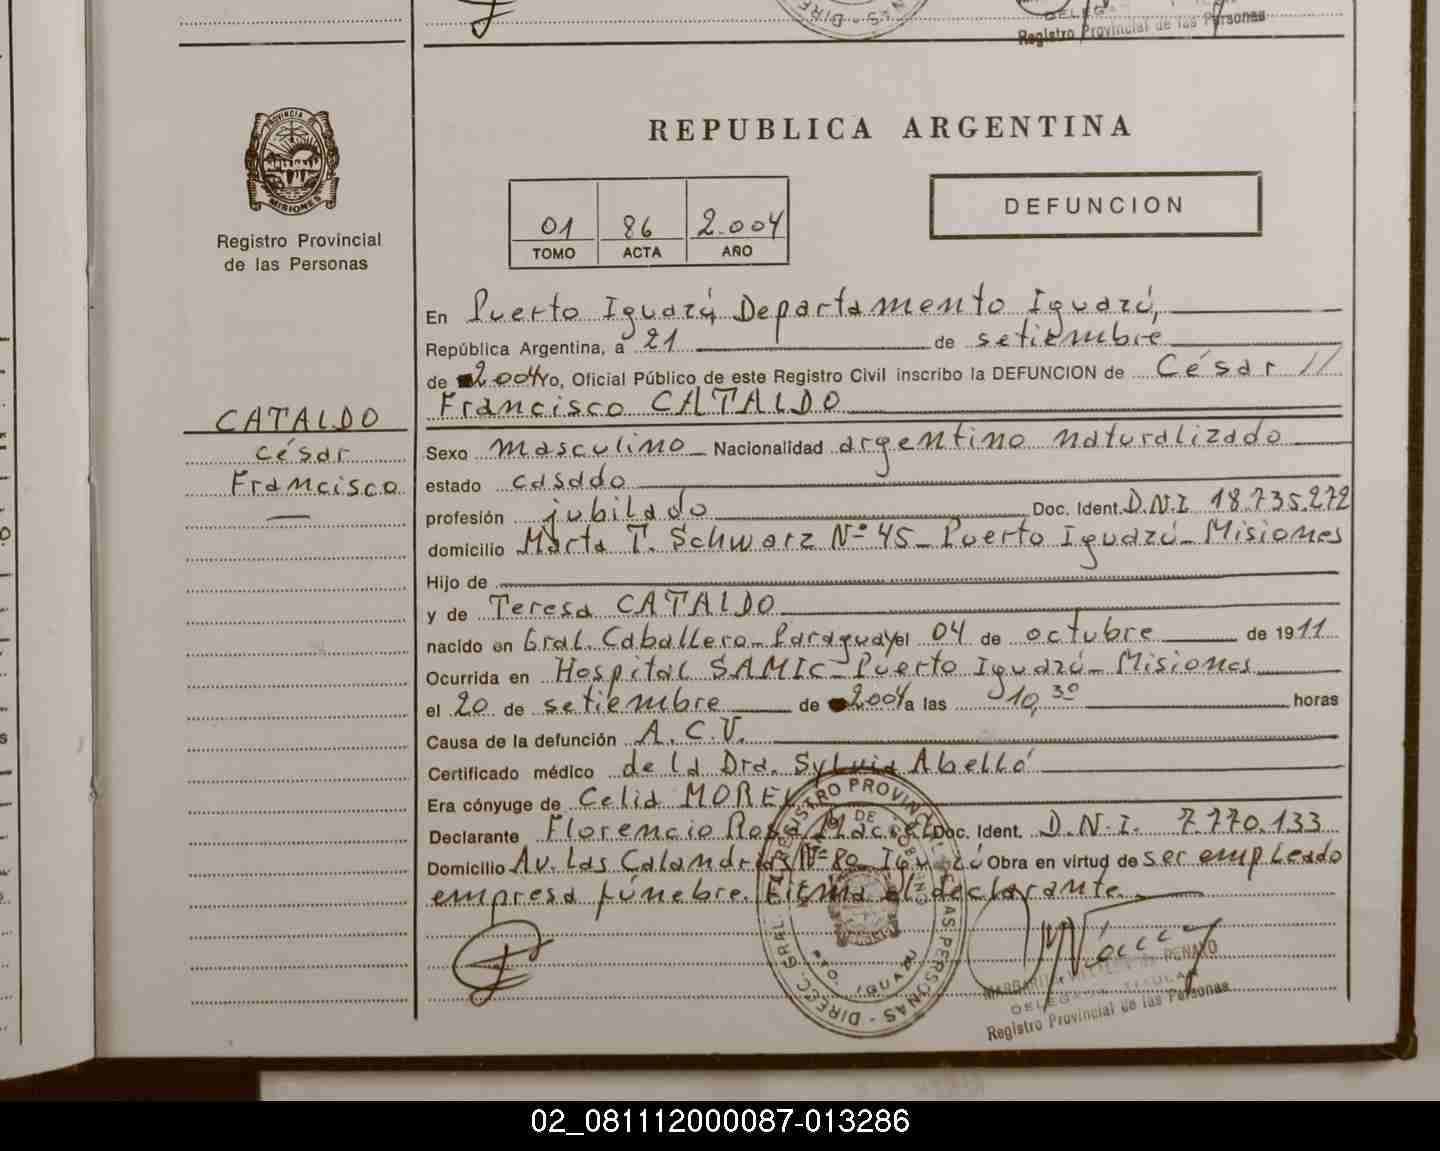 Registro Provincial de las Personas
PROVINCIA DE
MISIONES
Registro Provincial
de las Personas
REPUBLICA ARGENTINA
01 86 2.004
TOMO ACTA AÑO
DEFUNCION
En Puerto Iguazú Departamento Iguazú,
República Argentina, a 21 de setiembre
de 2004 yo, Oficial Público de este Registro Civil inscribo la DEFUNCION de César //
Francisco CATALDO
CATALDO
César
Francisco
Sexo masculino Nacionalidad argentino naturalizado
estado casado
profesión jubilado Doc. Ident. D.N.I. 18.735.272
domicilio Marta T. Schwarz Nº 45 - Puerto Iguazú - Misiones
Hijo de
y de Teresa CATALDO
nacido en Gral. Caballero - Paraguay el 04 de octubre de 1911
Ocurrida en Hospital SAMIC - Puerto Iguazú - Misiones
el 20 de setiembre de 2004 a las 10,30 horas
Causa de la defunción A.C.V.
Certificado médico de la Dra. Sylvia Abelló
Era cónyuge de Celia MOREL
Declarante Florencio Rosa Maciel Doc. Ident. D.N.I. 7.770.133
Domicilio Av. Las Calandrias Nº 80 Iguazú Obra en virtud de ser empleado
empresa fúnebre. Firma el declarante.
REGISTRO PROVINCIAL DE LAS PERSONAS - DIREC. GRAL.
PTO. IGUAZU
DELEGADA TITULAR
Registro Provincial de las Personas
02_081112000087-013286